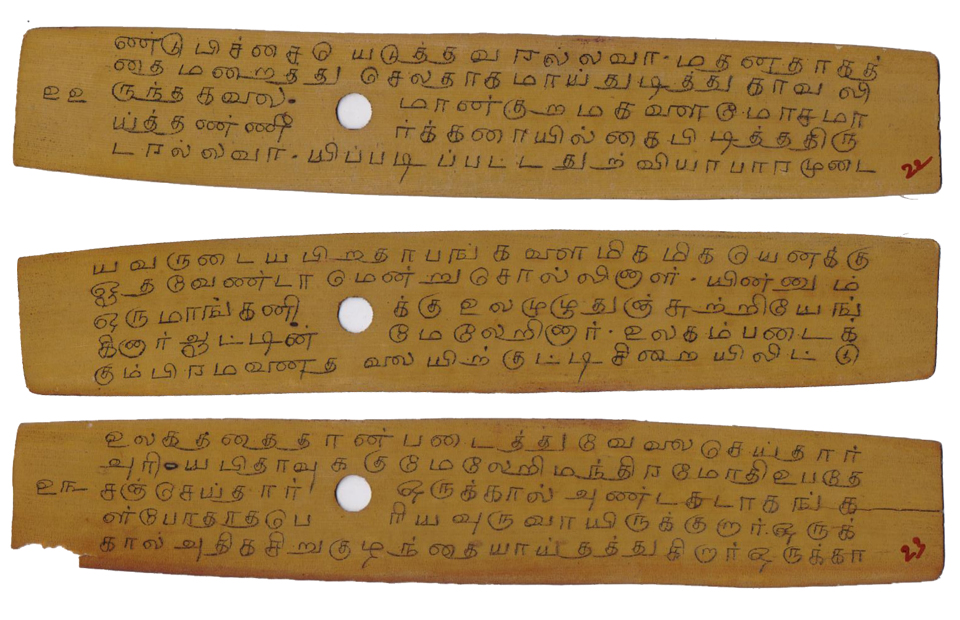 ண்டு பிச்சைெ யடுத்தவ ரல்லவா. மதனதாகத்
தை மறைத்து செலதாக மாய்துடித்து காவலி
௨௨ ருந்தகவல. மான்குற மகவளடு.மாசுமா
ய்த்தண்ணீ ர்க்கரையில் கைபிடித்ததிரு
டரல்லவா. யிப்படிப்பட்ட துற் வியாபாரமுடை 22
யவருடைய பிறதாபங்கள மிகமிகெயனக்கு
ஒதவேண்டாமென்றுசொல்லினாள். யின்னும்
ஒருமாங்கனி க்கு உலமுழுதுஞ்சுற்றியேங்
கினார் ஆட்டின் மேலேறினார். உலகம்படைக்
கும்பிரமவனைத லையிற்குட்டி சிறையிலிட்டு
உலகத்தைதான் படைத்துவேலைசெய்தார்
அரி யபிதாவுககுமேலேறிமந்திரமோதிஉபதே
௨௩ சஞ்செய்தார் ஒருக்கால் அண்டகடாகங்க
ள்போதாதபெ ரியவுருவாயிருக்குறார்.ஒருக்
கால் அதிகசிறுகுழந்தையாய்தத்துகிறார்ஒருக்கா 23